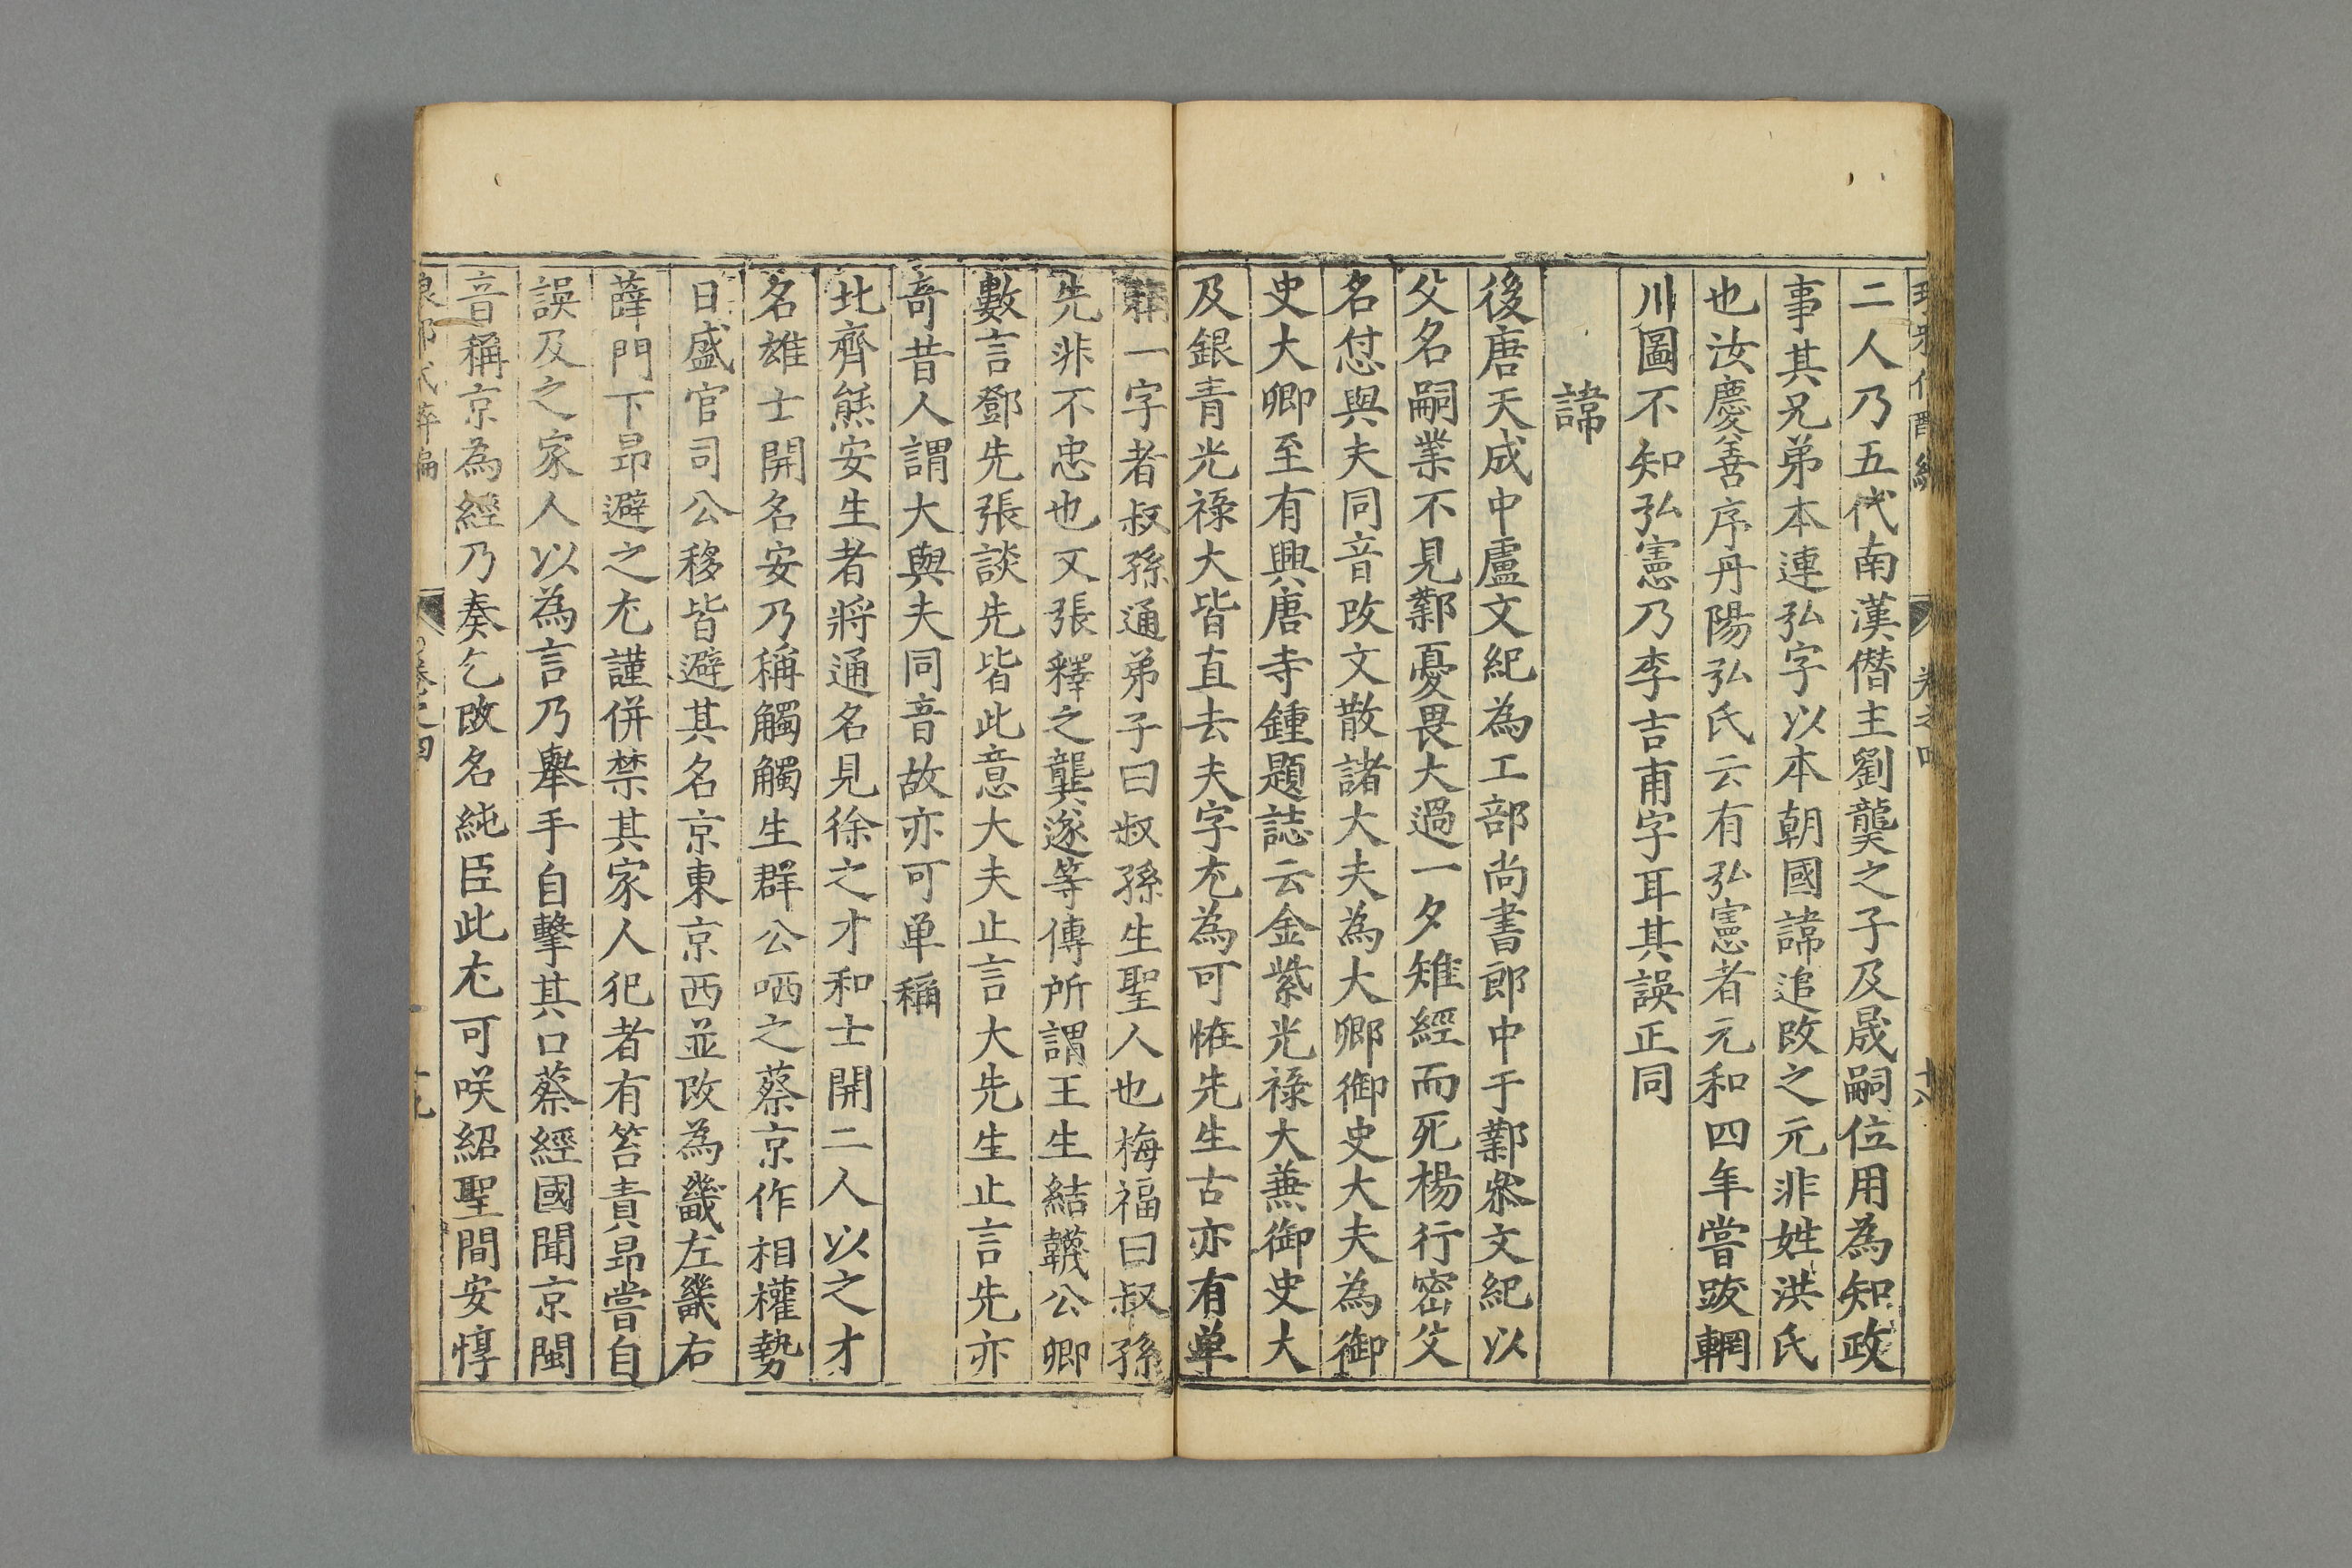 二人乃五代南漢僭主劉龑之子及晟嗣位用為知政
事其兄弟本連弘字以本朝國諱追改之元非姓洪氏
也汝慶善序丹陽弘氏云有弘憲者元和四年嘗跋輞
川圖不知弘憲乃李吉甫字耳其誤正同
諱
後唐天成中盧文紀為工部尚書郎中于鄴叅文紀以
父名嗣業不見鄴憂畏大過一夕雉經而死楊行密父
名怤與夫同音改文散諸大夫為大卿御史大夫為御
史大卿至有興唐寺鍾題誌云金紫光祿大兼御史大
及銀青光祿大皆直去夫字尤為可恠先生古亦有单
稱一字者叔孫通弟子曰叔孫生聖人也梅福曰叔孫
先非不忠也又張釋之龔遂等傳所謂王生結韈公卿
數言鄧先張談先皆此意大夫止言大先生止言先亦
奇昔人謂大與夫同音故亦可单稱
北齊熊安生者將通名見徐之才和士開二人以之才
名雄士開名安乃稱觸觸生群公哂之蔡京作相權勢
日盛官司公移皆避其名京東京西並改為畿左畿右
薛門下昻避之尤謹併禁其家人犯者有笞責昻嘗自
誤及之家人以為言乃舉手自擊其口蔡經國聞京閩
音稱京為經乃奏乞改名純臣此尤可咲紹聖間安惇